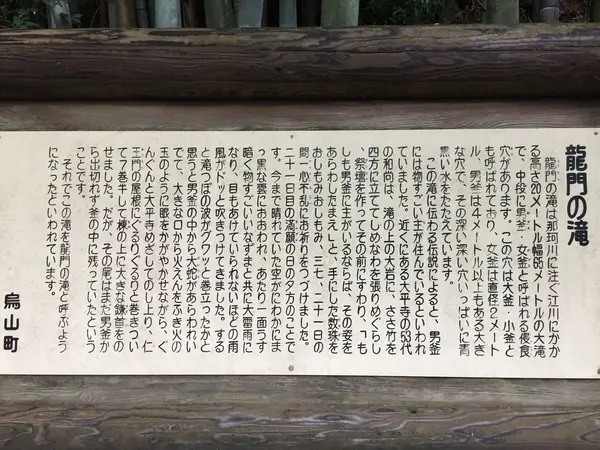 龍門の滝
龍門の滝は那珂川に注ぐ江川にかか
る高さ20メートル幅65メートルの大滝
で、中段に男釜・女釜と呼ばれる侵食
穴があります。この穴は大釜・小釜と
も呼ばれており、女釜は直径2メート
ル、男釜は4メートル以上もある大き
な穴で、その深い深い穴いっぱいに青
黒い水をたたえています。
この滝に伝わる伝説によると、男釜
には物すごい主が住んでいるといわれ
ていました。近くにある太平寺の53代
の和尚は、滝の上の大岩に、ささ竹を
四方に立ててしめなわを張りめぐらし
、祭壇を作ってその前にすわり、「も
しも男釜に主がいるならば、その姿を
あらわしたまえ」と、手にした数珠を
おしもみおしもみ、三七、二十一日の
間一心不乱にお祈りをつづけました。
二十一日目の満願の日の夕方のことで
す。今まで晴れていた空がにわかにま
っ黒な雲におおわれ、あたり一面うす
暗く物すごいいなずまと共に大雷雨に
なり、目もあけていられないほどの雨
風がドッと吹きつけてきました。する
と滝つぼの波がグワッと巻立ったかと
思うと男釜の中から大蛇があらわれい
でて、大きな口から火えんをふき火の
玉のように眼をかがやかせながら、ぐ
んぐんと太平寺めざしてのし上り、仁
王門の屋根にぐるりぐるりと巻きつい
て7巻半して棟の上に大きな鎌首をの
せました。だが、その尾はまだ男釜か
ら出切れず釜の中に残っていたという
ことです。
それでこの滝を龍門の滝と呼ぶよう
になったといわれています。
烏山町